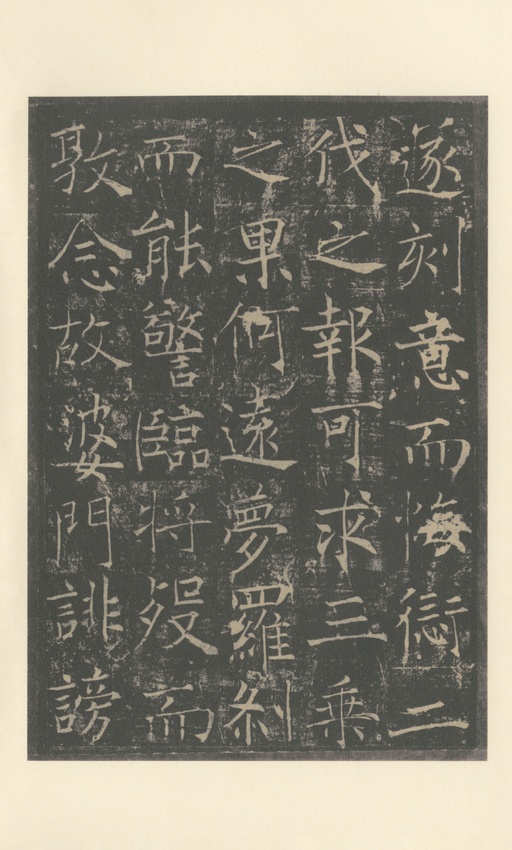 遂刻意而悔愆二
伐之報可求三乗
之果何遠夢羅刹
而能警臨将殁而
敦念故婆門誹謗